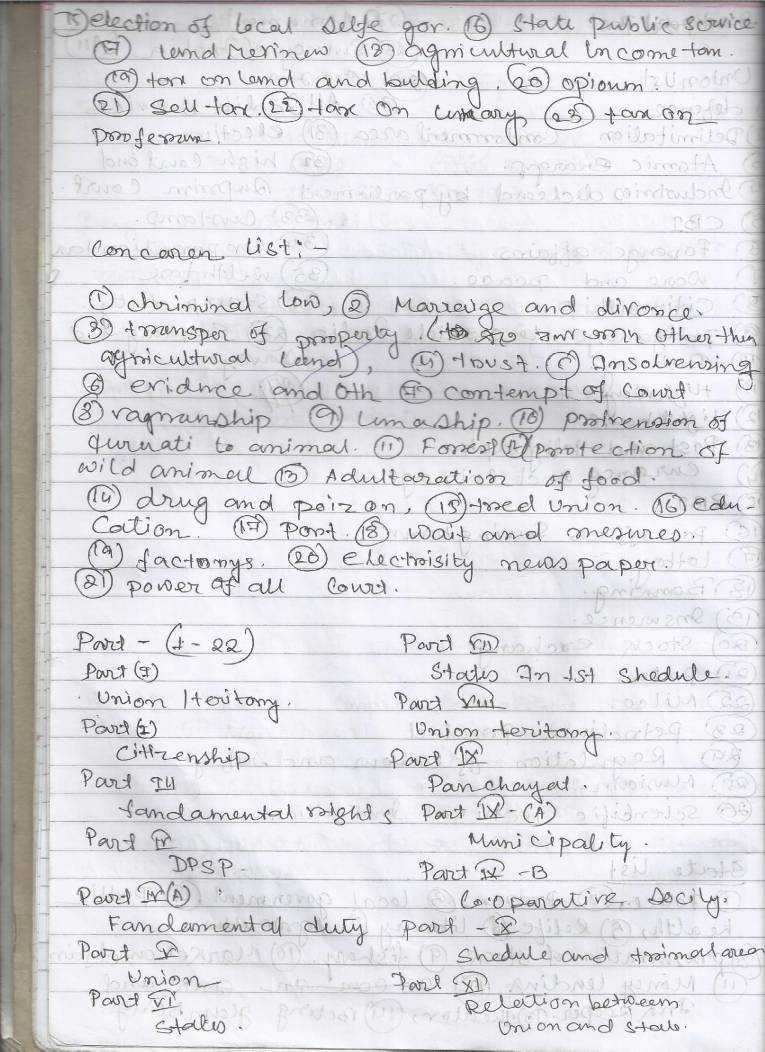 (15) election of local selfe gor. (16) state public service
(17) lemd (18) agricultural Income tax.
(19) tax on lemd and building. (20) opioum.
(21) sell tax. (22) tax on (23) tax on
Concaren list:-
(1) chriminal low, (2) Marraige and divorce.
(3) transper of property. ( other then
agricultural land), (4) trust. (5) Insolvensing
(6) evidnce and Oth (7) contempt of Court
(8) (9) (10) of
to animal. (11) Forest (12) protection of
wild animal (13) Adultaration of food.
(14) drug and poizon, (15) tred union. (16) edu-
cation. (17) Port. (18) wait and mesures.
(19) factorys. (20) electrisity news paper.
(21) power of all Court.
Part - (1-22)
Part (I)
Union / teritory.
Part (I)
Citizenship
Part III
fandamental rights
Part IV
DPSP.
Part IV(A)
Fandemental duty
Part V
Union
Part VI
States.
Part VII
States In 1st shedule.
Part VIII
Union teritory.
Part IX
Panchayat.
Part IX-(A)
Municipality.
Part IX-B
Co.oparative Socily.
part - X
Shedule and area
Part XI
Relation between
Union and state.